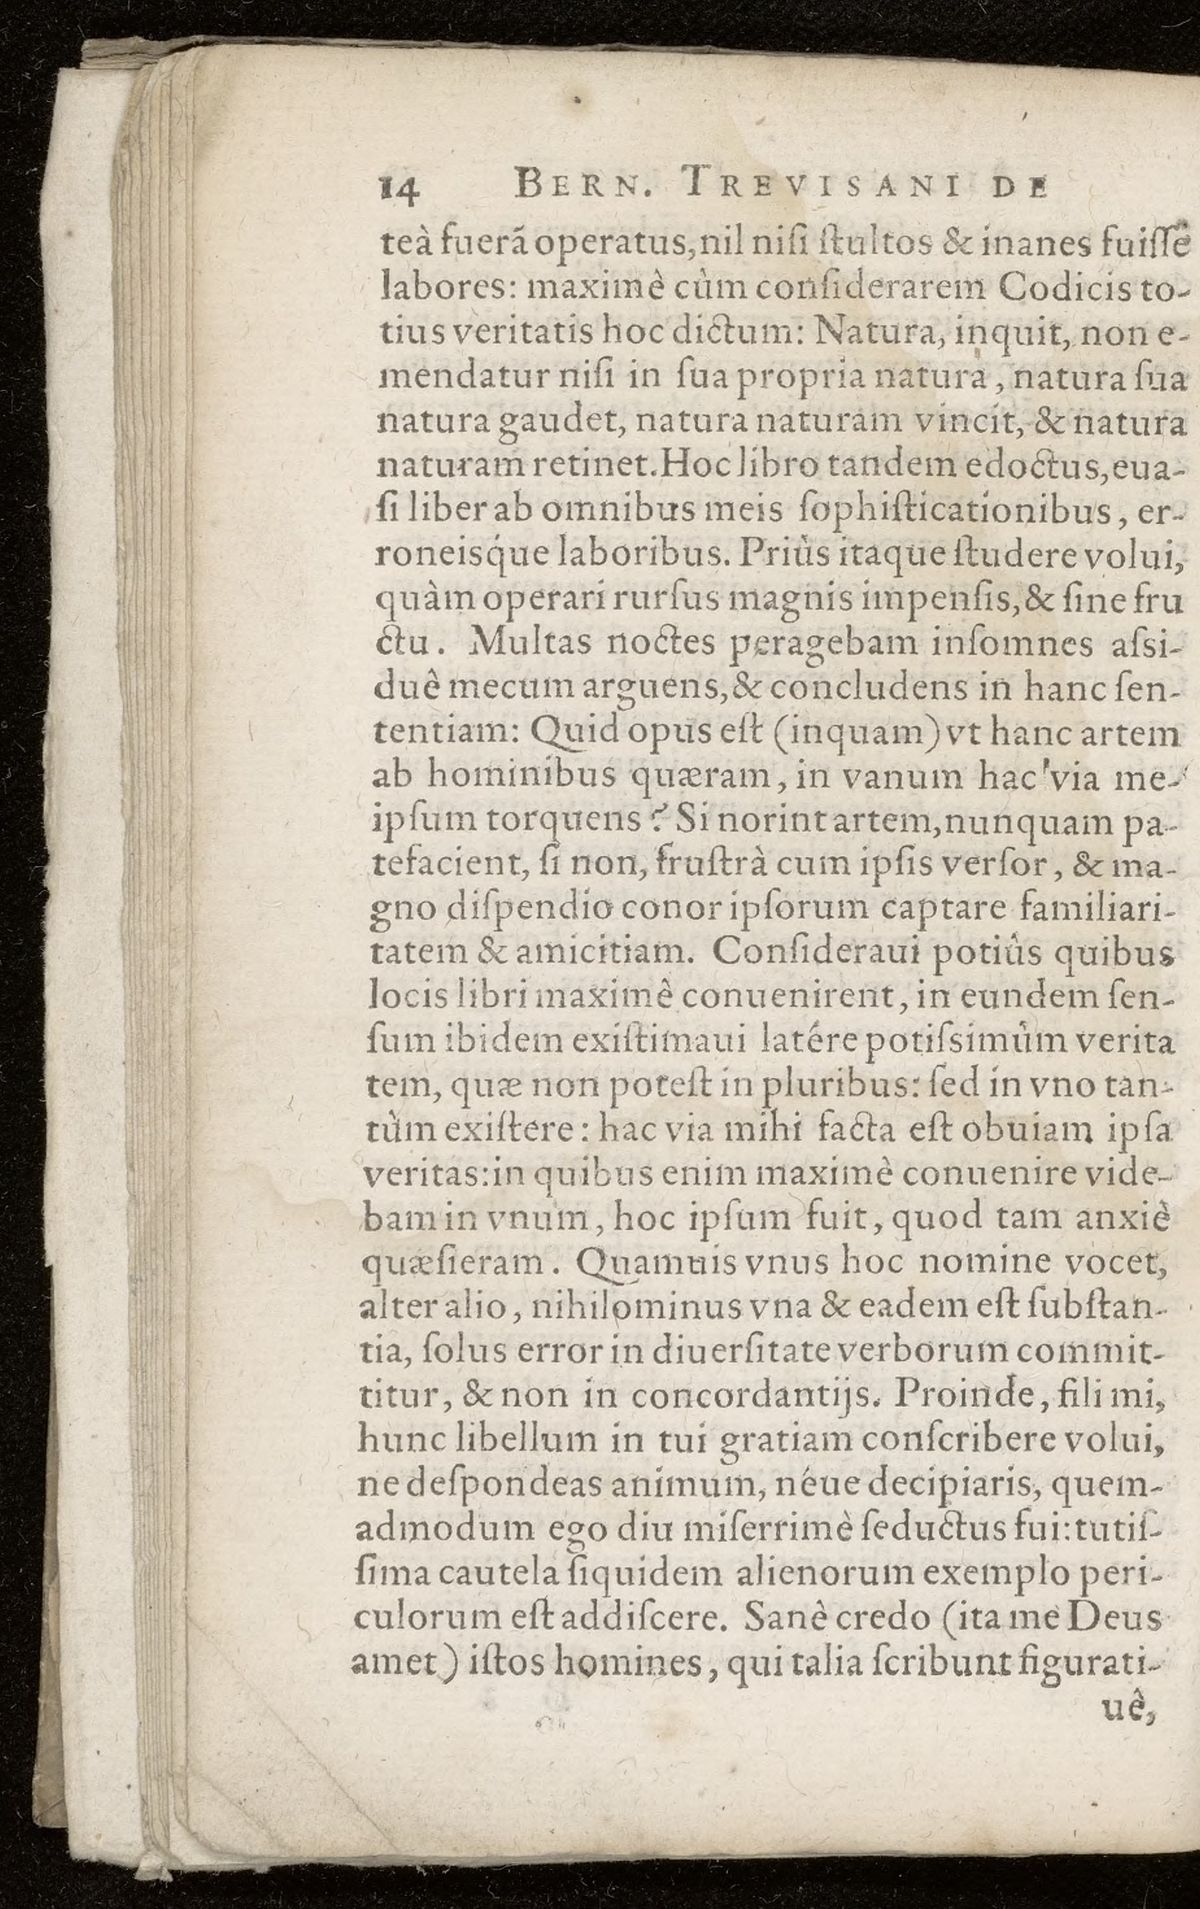 14 BERN. TREVISANI DE
teà fuerã operatus, nil niſi ſtultos & inanes fuiſſê
labores: maximè cùm conſiderarem Codicis to-
tius veritatis hoc dictum: Natura, inquit, non e-
mendatur niſi in ſua propria natura, natura ſua
natura gaudet, natura naturam vincit, & natura
naturam retinet. Hoc libro tandem edoctus, eua-
ſi liber ab omnibus meis ſophiſticationibus, er-
roneisq́ue laboribus. Priùs itaque ſtudere volui,
quàm operari rurſus magnis impenſis, & ſine fru
ctu. Multas noctes peragebam inſomnes aſsi-
duê mecum arguens, & concludens in hanc ſen-
tentiam: Quid opus eſt (inquam) vt hanc artem
ab hominibus quæram, in vanum hac via me-
ipſum torquens? Si norint artem, nunquam pa-
tefacient, ſi non, fruſtrà cum ipſis verſor, & ma-
gno diſpendio conor ipſorum captare familiari-
tatem & amicitiam. Conſideraui potiûs quibus
locis libri maximè conuenirent, in eundem ſen-
ſum ibidem exiſtimaui latére potiſsimûm verita
tem, quæ non poteſt in pluribus: ſed in vno tan-
tùm exiſtere: hac via mihi facta eſt obuiam ipſa
veritas: in quibus enim maximè conuenire vide-
bam in vnum, hoc ipſum fuit, quod tam anxiè
quæſieram. Quamuis vnus hoc nomine vocet,
alter alio, nihilominus vna & eadem eſt ſubſtan-
tia, ſolus error in diuerſitate verborum commit-
titur, & non in concordantijs. Proinde, fili mi,
hunc libellum in tui gratiam conſcribere volui,
ne deſpondeas animum, néue decipiaris, quem-
admodum ego diu miſerrimè ſeductus fui: tutiſ-
ſima cautela ſiquidem alienorum exemplo peri-
culorum eſt addiſcere. Sanè credo (ita me Deus
amet) iſtos homines, qui talia ſcribunt figurati-
uê,